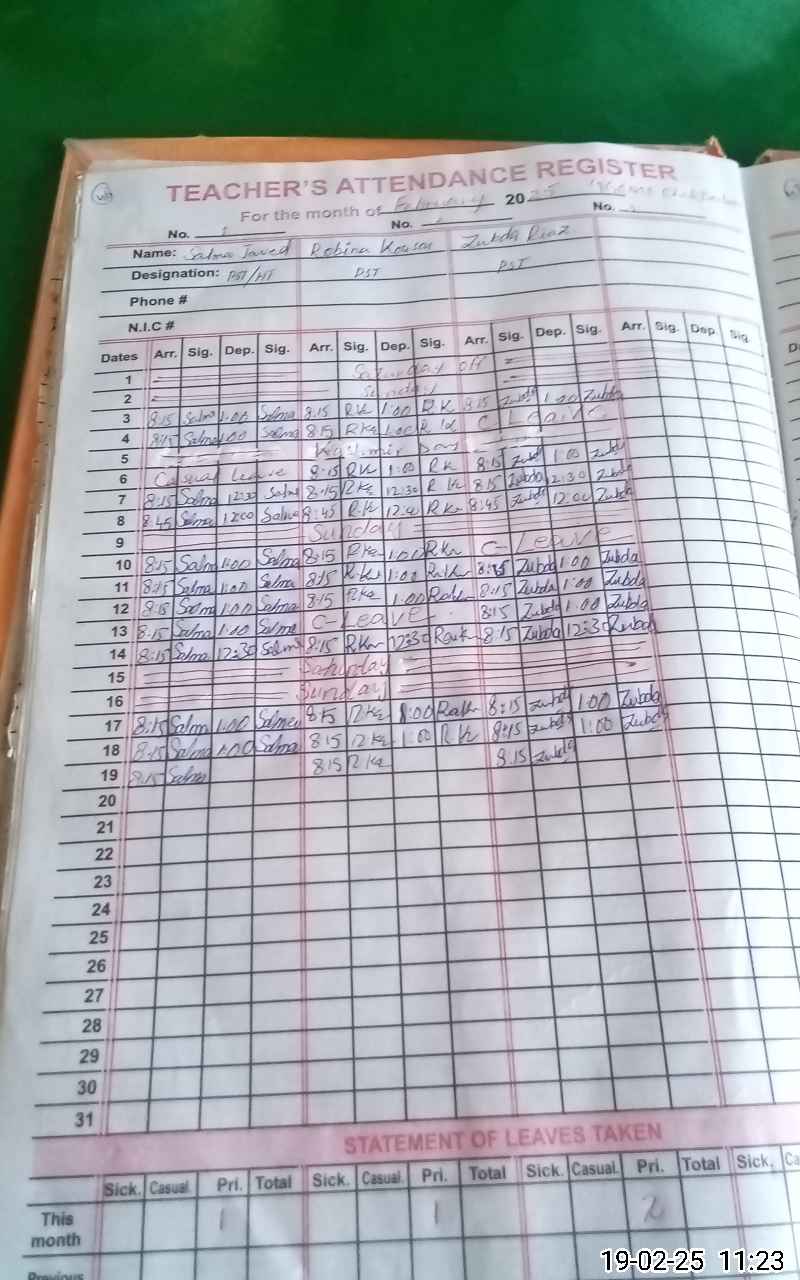 VIII
TEACHER'S ATTENDANCE REGISTER
For the month of February 2025
No. 1 No. No.
Name: Salma Javed Robina Kousar Zubda Riaz
Designation: PST/HT PST PST
Phone #
N.I.C #
Dates Arr. Sig. Dep. Sig. Arr. Sig. Dep. Sig. Arr. Sig. Dep. Sig. Arr. Sig. Dep Sig
1 Saturday off
2 Sunday
3 8:15 Salma 1:00 Salma 8:15 RK 1:00 RK 8:15 Zubda 1:00 Zubda
4 8:15 Salma 1:00 Salma 8:15 RK 1:00 RK C Leave
5 Kashmir Day
6 Casual Leave 8:15 RK 1:00 RK 8:15 Zubda 1:00 Zubda
7 8:15 Salma 12:30 Salma 8:15 RK 12:30 RK 8:15 Zubda 12:30 Zubda
8 8:45 Salma 12:00 Salma 8:45 RK 12:00 RK 8:45 Zubda 12:00 Zubda
9 Sunday
10 8:15 Salma 1:00 Salma 8:15 RK 1:00 RK C-Leave
11 8:15 Salma 1:00 Salma 8:15 RK 1:00 RK 8:15 Zubda 1:00 Zubda
12 8:15 Salma 1:00 Salma 8:15 RK 1:00 8:15 Zubda 1:00 Zubda
13 8:15 Salma 1:00 Salma C-Leave 8:15 Zubda 1:00 Zubda
14 8:15 Salma 12:30 Salma 8:15 RK 12:30 8:15 Zubda 12:30 Zubda
15 Saturday
16 Sunday
17 8:15 Salma 1:00 Salma 8:15 RK 1:00 8:15 Zubda 1:00 Zubda
18 8:15 Salma 1:00 Salma 8:15 RK 1:00 RK 8:15 Zubda 1:00 Zubda
19 8:15 Salma 8:15 RK 8:15 Zubda
20
21
22
23
24
25
26
27
28
29
30
31
STATEMENT OF LEAVES TAKEN
Sick. Casual. Pri. Total Sick. Casual. Pri. Total Sick. Casual. Pri. Total Sick. Ca
This month 1 1 2
Previous
19-02-25 11:23